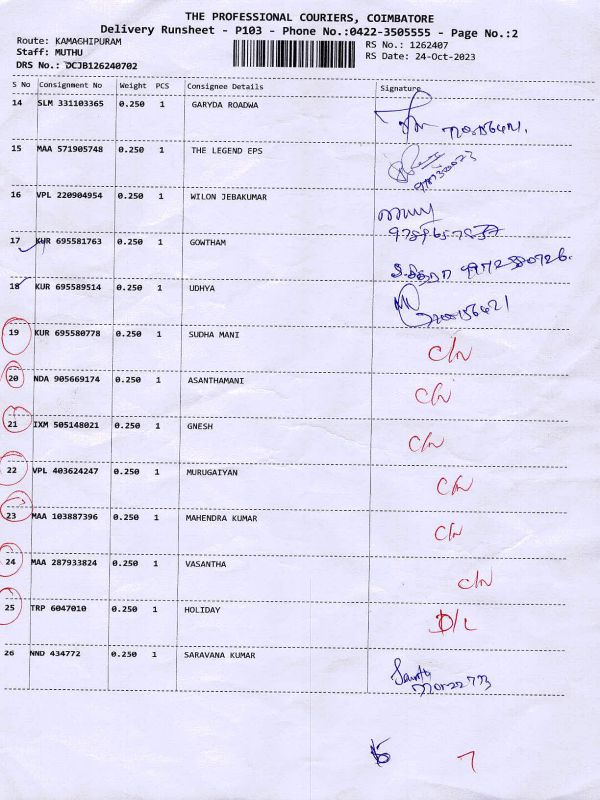 THE PROFESSIONAL COURIERS, COIMBATORE
Delivery Runsheet - P103 - Phone No.:0422-3505555 - Page No.:2
Route: KAMAGHIPURAM RS No.: 1262407
Staff: MUTHU RS Date: 24-Oct-2023
DRS No.: DCJB126240702
S No Consignment No Weight PCS Consignee Details Signature
14 SLM 331103365 0.250 1 GARYDA ROADWA
15 MAA 571905748 0.250 1 THE LEGEND EPS
16 VPL 220904954 0.250 1 WILON JEBAKUMAR
17 KUR 695581763 0.250 1 GOWTHAM
18 KUR 695589514 0.250 1 UDHYA
19 KUR 695580778 0.250 1 SUDHA MANI C/N
20 NDA 905669174 0.250 1 ASANTHAMANI C/N
21 IXM 505148021 0.250 1 GNESH C/N
22 VPL 403624247 0.250 1 MURUGAIYAN C/N
23 MAA 103887396 0.250 1 MAHENDRA KUMAR C/N
24 MAA 287933824 0.250 1 VASANTHA C/N
25 TRP 6047010 0.250 1 HOLIDAY D/L
26 NND 434772 0.250 1 SARAVANA KUMAR
7